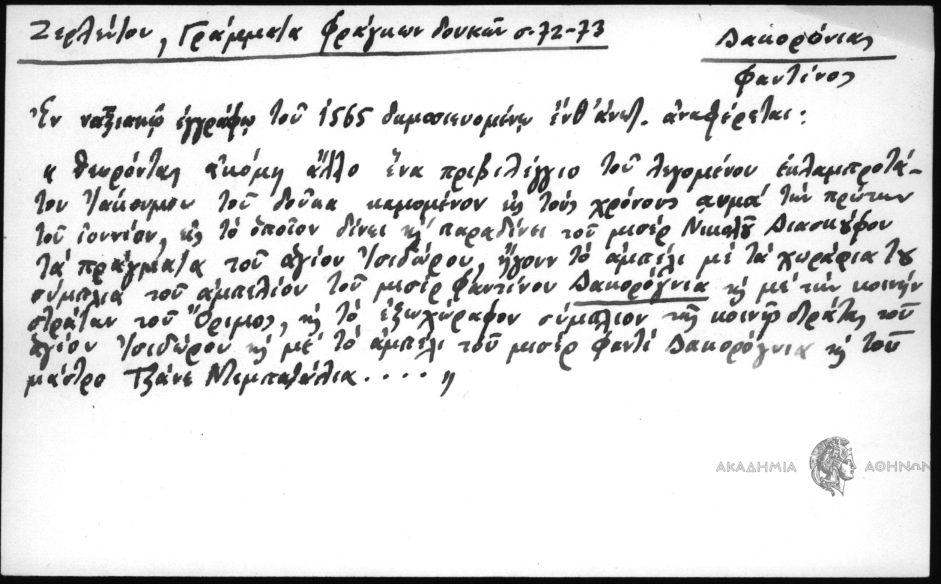 Ζερλέντου, Γράμματα Φράγκων δουκῶν σ. 72-73
Δακορόνιας
Φαντῖνος
Ἐν ναξιακῷ ἐγγράφῳ τοῦ 1565 δημοσιευομένῳ ἔνθ' ἀνωτ. ἀναφέρεται:
« Θεωρόντας ἀκόμη ἄλλο ἕνα πριβιλέγγιο τοῦ λεγομένου ἐκλαμπροτά-
του Ἰακουμου τοῦ δοῦκα καμομένον εἰς τοὺς χρόνους αυμα τὴν πρώτην
τοῦ ἰουνίου, εἰς τὸ ὁποῖον δίνει κὴ παραδίνει τοῦ μισέρ Νικολοῦ Διασκούφου
τὰ πράγματα τοῦ ἁγίου Ἰσιδώρου, ἤγουν τὸ ἀμπέλι μὲ τὰ χωράφια του
σύμπλια τοῦ ἀμπελίου τοῦ μισέρ Φαντίνου Δακορόγνια κὴ μὲ τὴν κοινὴν
στράταν τοῦ Ὄριμος, κὴ τὸ ἐξωχώραφον σύμπλιον τῆς κοινῆς στράτας τοῦ
ἁγίου Ἰσιδώρου κὴ μὲ τὸ ἀμπέλι τοῦ μισέρ Φαντὶ Δακορόγνια κὴ τοῦ
μάστρο Τζάνε . . . . »
ΑΚΑΔΗΜΙΑ ΑΘΗΝΩΝ